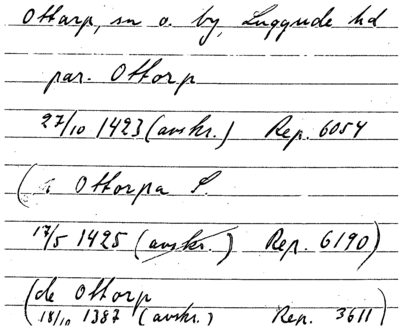 Ottarp, sn o. by, Luggude hd
par. Ottorp
27/10 1423 (avskr.) Rep. 6054
( Ottorpa S.
17/5 1425 (avskr.) Rep. 6190)
(de Ottorp
18/10 1387 (avskr.) Rep. 3611)